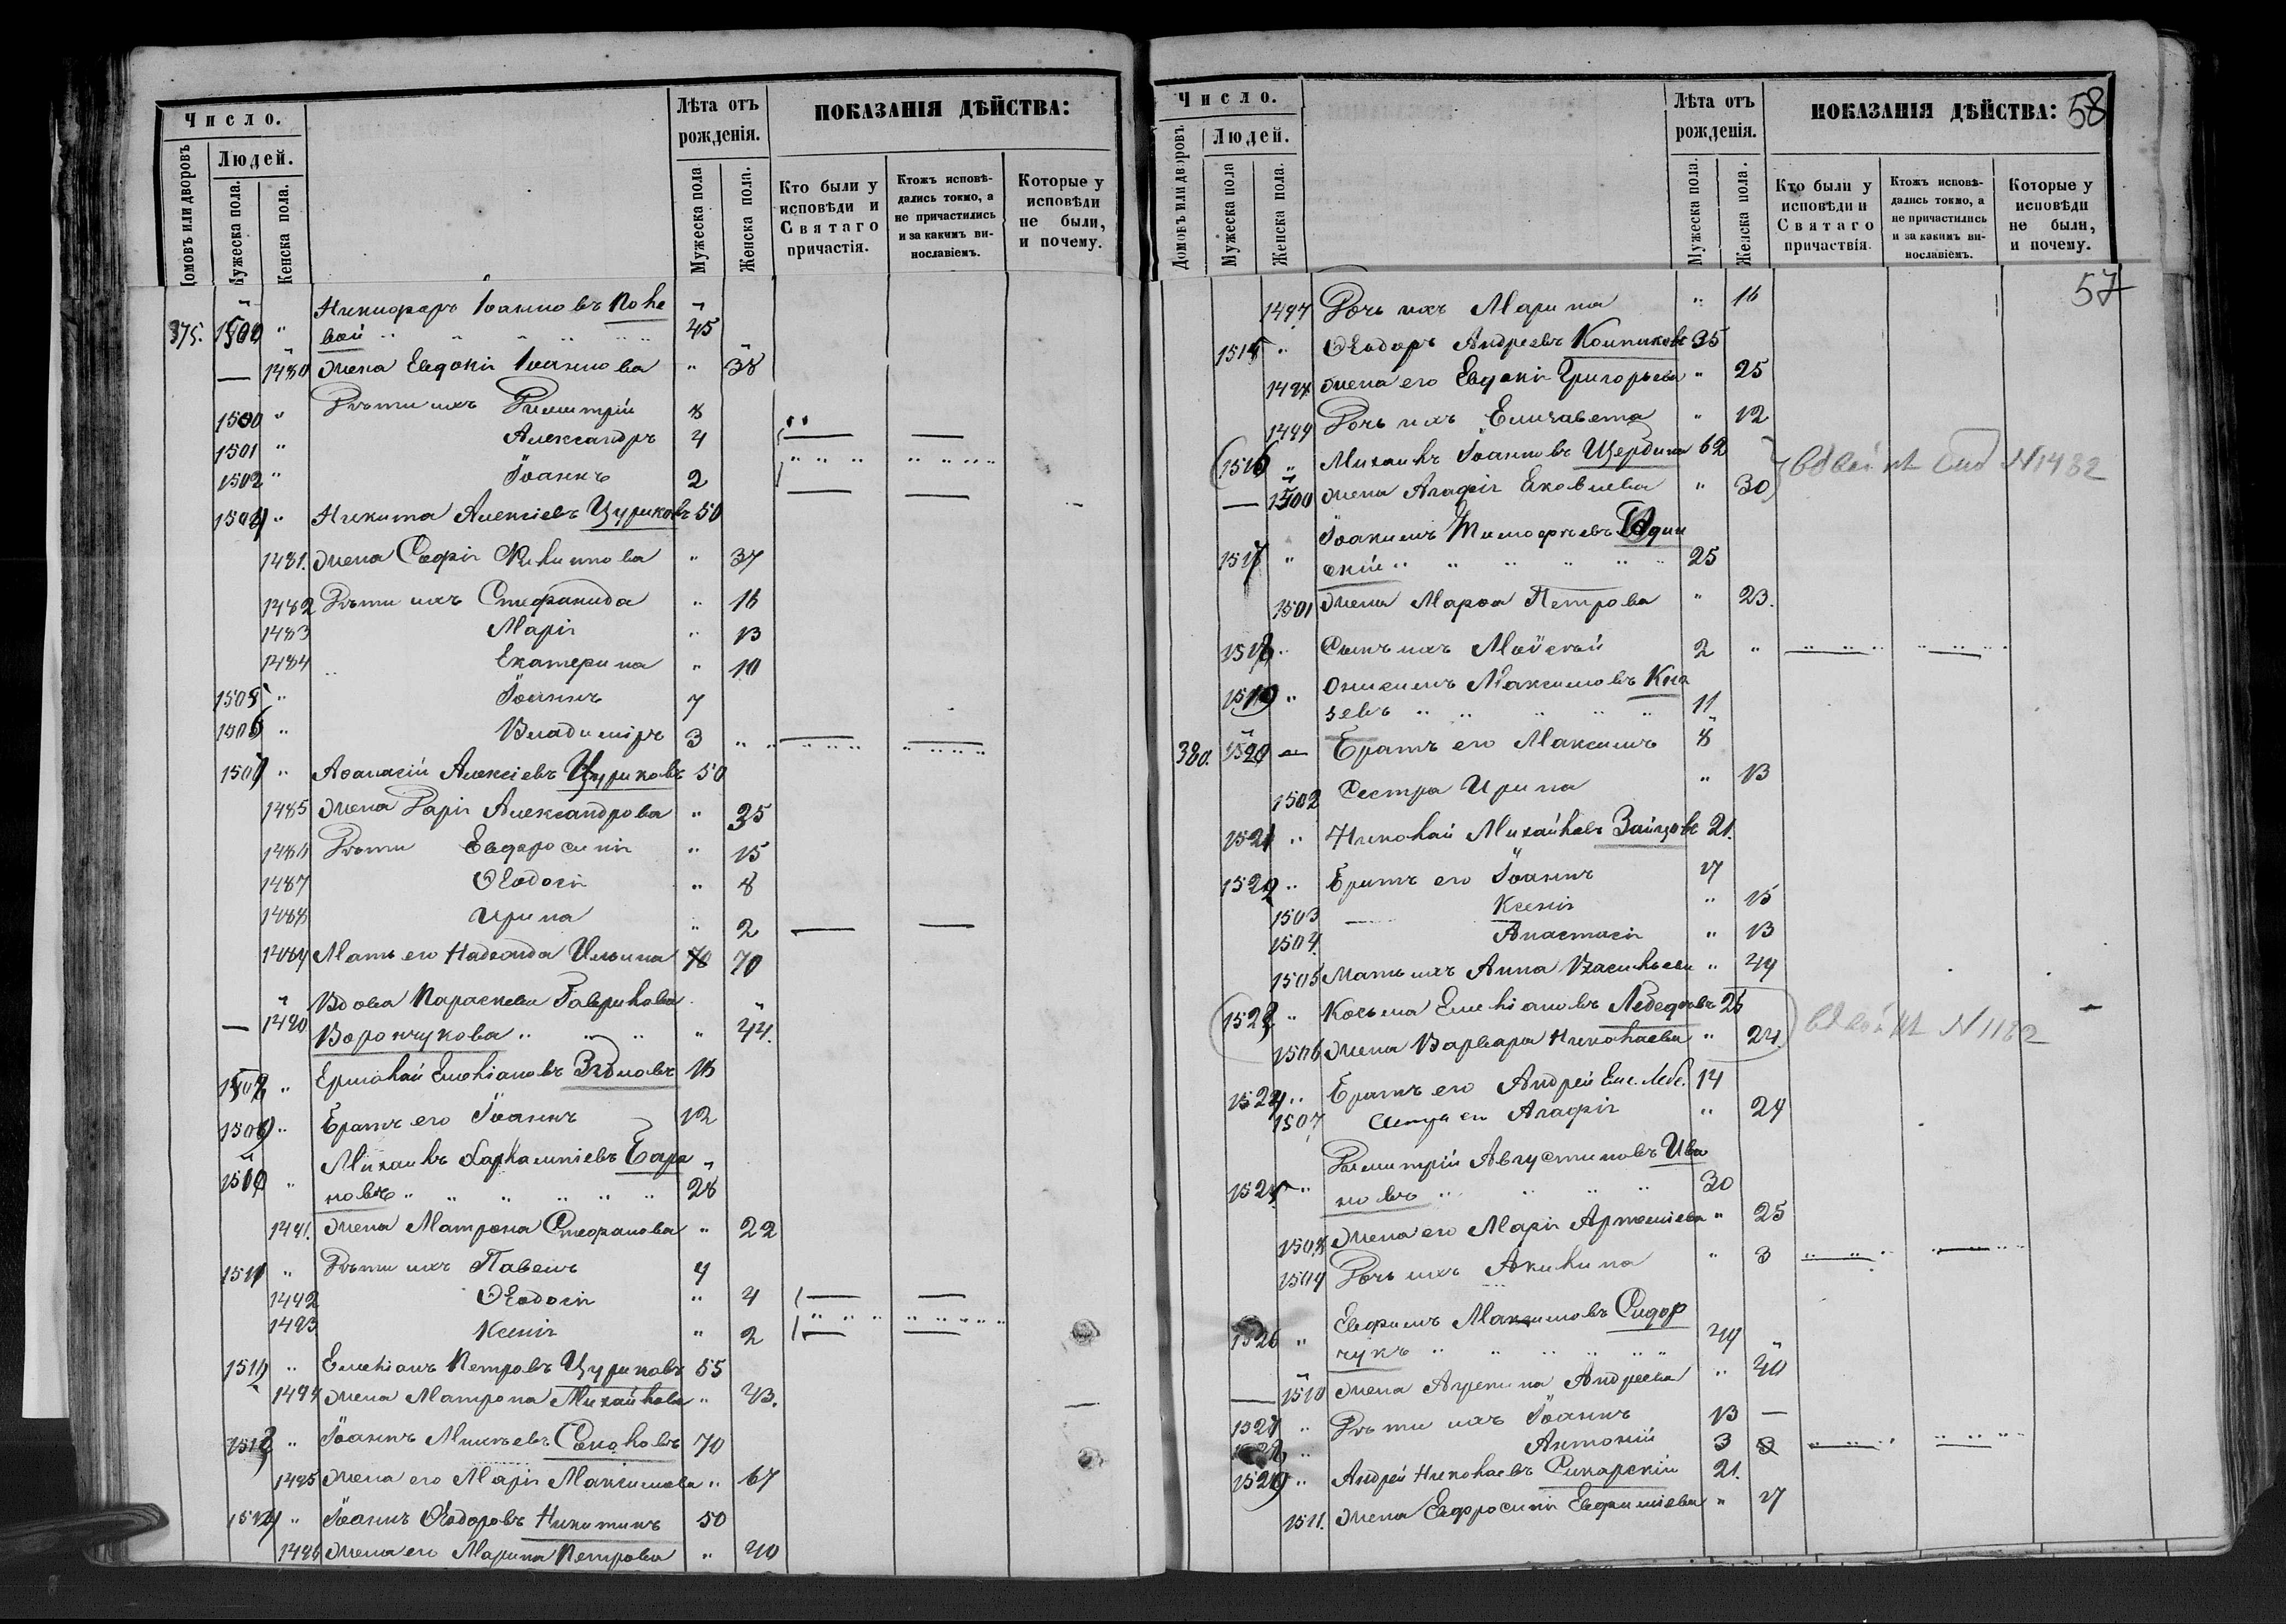 Число.
Людей.
Домовъ или дворовъ
Мужеска пола.
Женска пола.
Лѣта отъ рожденія.
Мужеска пола
Женска пола.
ПОКАЗАНІЯ ДѢЙСТВА:
Кто были у исповѣди и Святаго причастія.
Ктожъ исповѣдались токмо, а не причастились и за какимъ винославіемъ.
Которые у исповѣди не были, и почему.
Никифоръ Іоанновъ Поле
375. вой 45
1480 Жена Евдокія Іоаннова " 38
1500 " Дѣти ихъ Димитрій 8
1501 " Александръ 4
1502 " Іоаннъ 2
1504 " Никита Алексіевъ Цуриковъ 50
1481. Жена Софія " 37
1482 Дѣти ихъ Стефанида " 16
1483 Марія " 13
1484 Екатерина " 10
1505 " Іоаннъ 7
1506 " Владиміръ 3
1507 " Аѳанасій Алексіевъ Цуриковъ 50
1485 Жена Дарія Александрова " 35
Дѣти Евфросинія " 15
1487 Ѳеодосія " 8
1488 Ирина " 2
Мать его Надежда Ильина 70
Вдова Параскева Гаврилова
1490 Ворончукова " 44.
Ермолай Емеліановъ
Братъ его Іоаннъ 12
Михаилъ Харлампіевъ Бара
новъ 28
1491. Жена Матрона Стефанова " 22
1511 " Дѣти ихъ Павелъ
1492 Ѳеодосія " 4
1493 Ксенія " 2
" Емеліанъ Петровъ Цуриковъ 55
1494 Жена Матрона Михайлова " 43.
1513 " Іоаннъ Соколовъ 70
1495 Жена его Марія Максимова " 67
1514 " Іоаннъ Ѳеодоровъ Никитинъ 50
1496 Жена его Марина Петрова " 40
Число.
Людей.
Домовъ или дворовъ
Мужеска пола
Женска пола.
Лѣта отъ рожденія.
Мужеска пола.
Женска пола.
ПОКАЗАНІЯ ДѢЙСТВА: 58
Кто были у исповѣди и Святаго причаствія.
Ктожъ исповѣдались токмо, а не причастились и за какимъ винославіемъ.
Которые у исповѣди не были, и почему.
57
1497 Дочь ихъ Марина " 16
1515 " Ѳеодоръ Андреевъ 35
Жена его Евдокія Григорьева " 25
1499 Дочь ихъ Елисавета " 12
1516 " Михаилъ Іоанновъ Щербина 62
1500 Жена Агафія Яковлева " 30
N 1482
1517 " Іоакимъ Тимофѣевъ
скій 25
1501 Жена Марѳа Петрова " 23.
1518 " Сынъ ихъ Моѵсей 2 "
1519 " Онисимъ Максимовъ Кня
зевъ 11
380. 1520 Братъ его Максимъ 8
1502 Сестра Ирина " 13
1521 " Николай Михайловъ Зайцовъ 21.
1522 " Братъ его Іоаннъ 17
1503 Ксенія " 15
1504 Анастасія " 13
1505 Мать ихъ Анна Васильева " 44
1523 " Косьма Емеліановъ Лебедевъ 26
1506 Жена Варвара Николаева " 24.
N 1182
1524 " Братъ его Андрей Еме. Лебе. 14
1507 Сестра его Агафія " 24
Димитрій Августиновъ Ива
1525 " новъ 30
1508 Жена его Марія Артеміева " 25
1509 Дочь ихъ Акилина " 3
Евфимъ Максимовъ Сидор
1526 " чукъ 44
1510 Жена Агрепина Андреева " 40
1527 " Дѣти ихъ Іоаннъ 13
Антоній 3
1529 " Андрей Николаевъ Сикарскій 21.
1511. Жена Евфросинія Евфиміева " 17